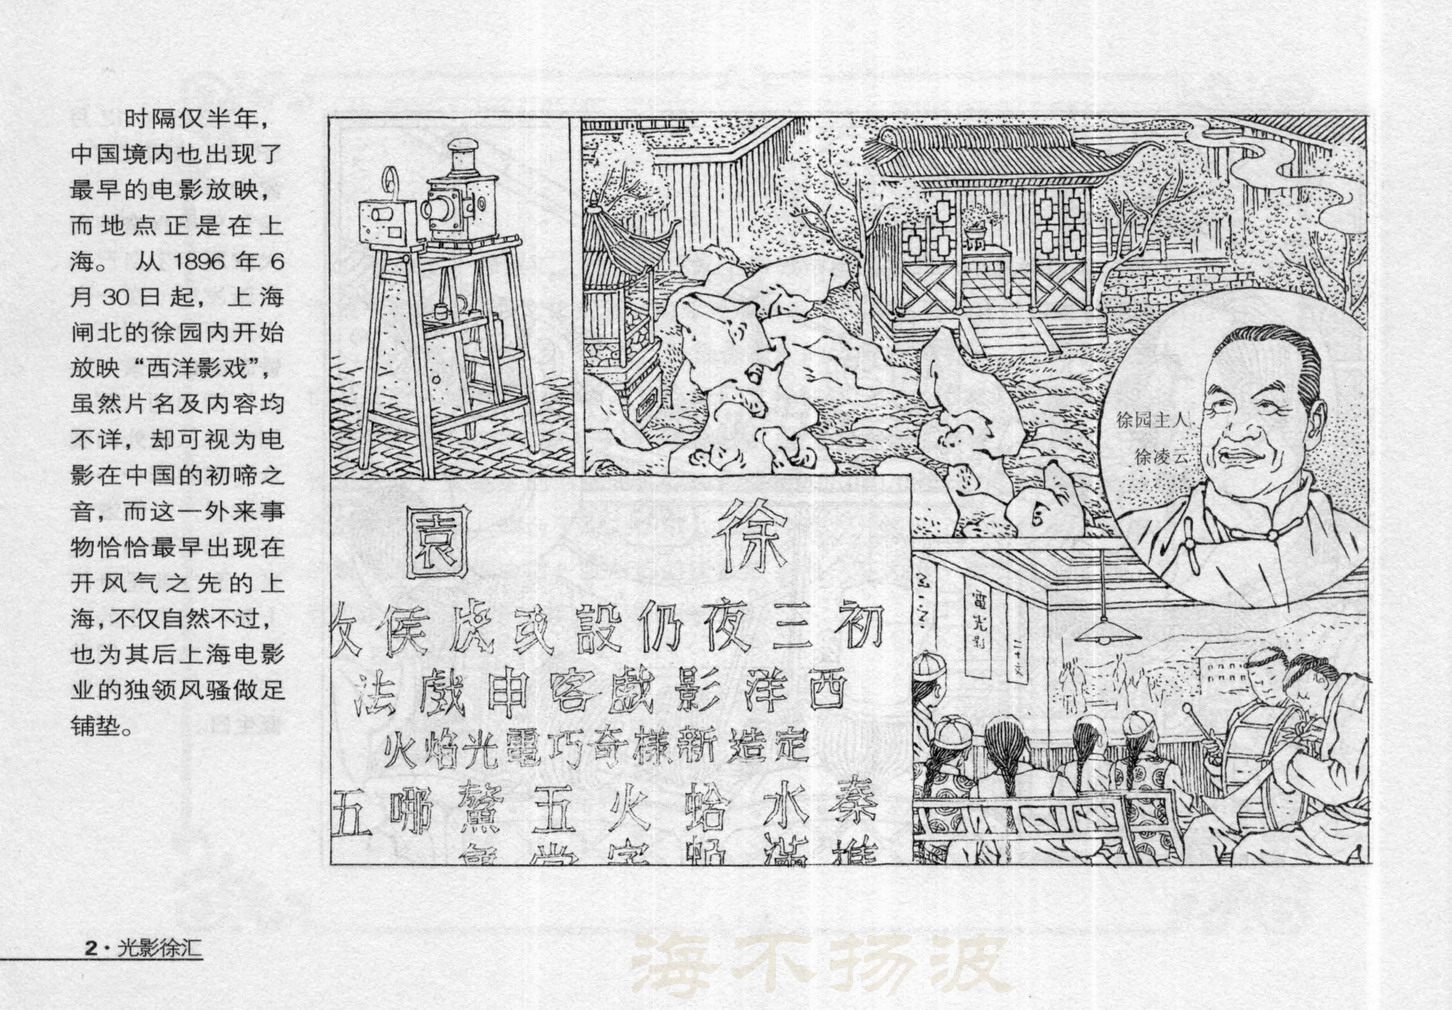 时隔仅半年，
中国境内也出现了
最早的电影放映，
而地点正是在上
海。从 1896 年 6
月 30 日起，上海
闸北的徐园内开始
放映“西洋影戏”，
虽然片名及内容均
不详，却可视为电
影在中国的初啼之
音，而这一外来事
物恰恰最早出现在
开风气之先的上
海，不仅自然不过，
也为其后上海电影
业的独领风骚做足
铺垫。
徐园主人
徐凌云
徐園
初三夜仍設
西洋影戲客串戲法
定造新樣奇巧電光焰火
秦水蛤火五
電光影
2·光影徐汇
海不扬波